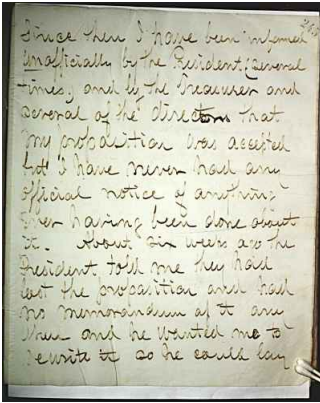 Since then I have been informed
unofficially by the President, (several
times,) and by the Treasurer and
several of the directors that
my proposition was accepted
but I have never had any
official notice of anything
ever having been done about
it. About six weeks ago the
President told me they had
lost the proposition and had
no memorandum of it any
where and he wanted me to
rewrite it so he could lay